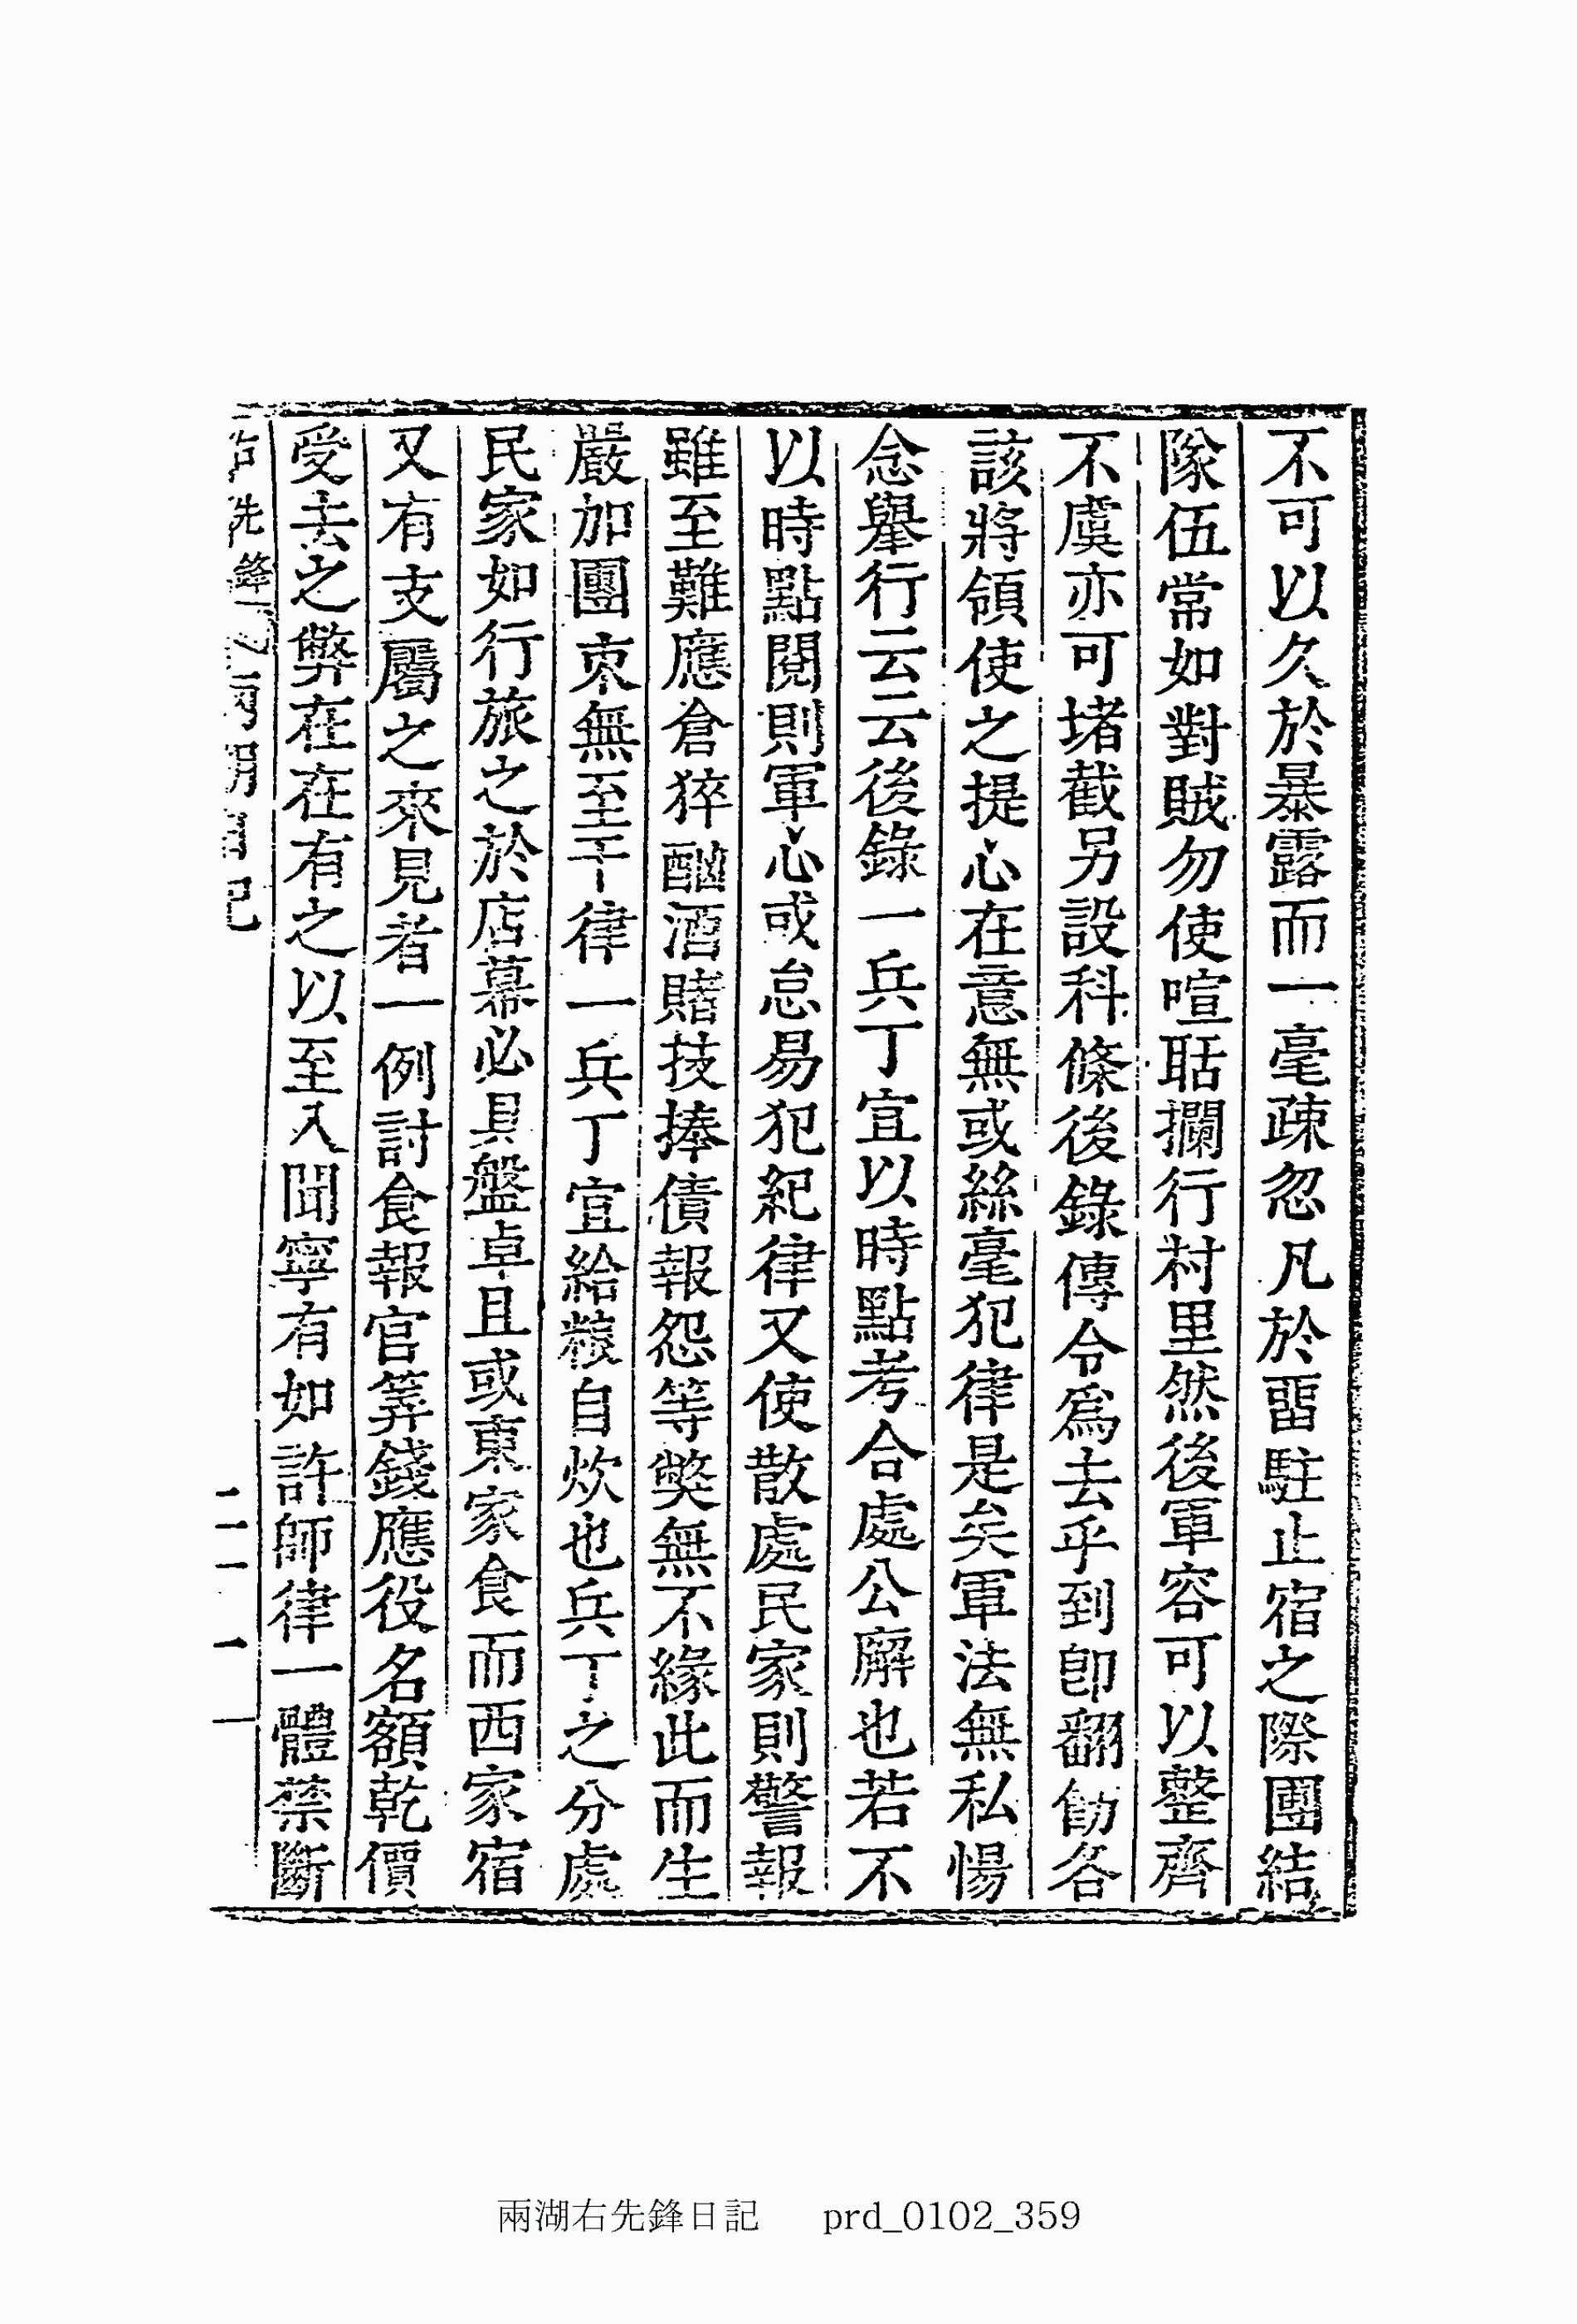 不可以久於暴露而一毫疎忽凡於畱駐止宿之際團結
隊伍常如對賊勿使喧聒攔行村里然後軍容可以整齊
不虞亦可堵截另設科條後錄傳令爲去乎到卽翻飭各
該將領使之提心在意無或絲毫犯律是矣軍法無私惕
念擧行云云後錄一兵丁宜以時點考合處公廨也若不
以時點閱則軍心或怠易犯紀律又使散處民家則警報
雖至難應倉猝酗酒賭技捧債報怨等獘無不緣此而生
嚴加團束無至干律一兵丁宜給粮自炊也兵丁之分處
民家如行旅之於店幕必具盤卓且或東家食而西家宿
又有支屬之來見者一例討食報官筭錢應役名額乾價
受去之弊在在有之以至入聞寧有如許師律一體禁斷
兩湖右先鋒日記 prd_0102_359